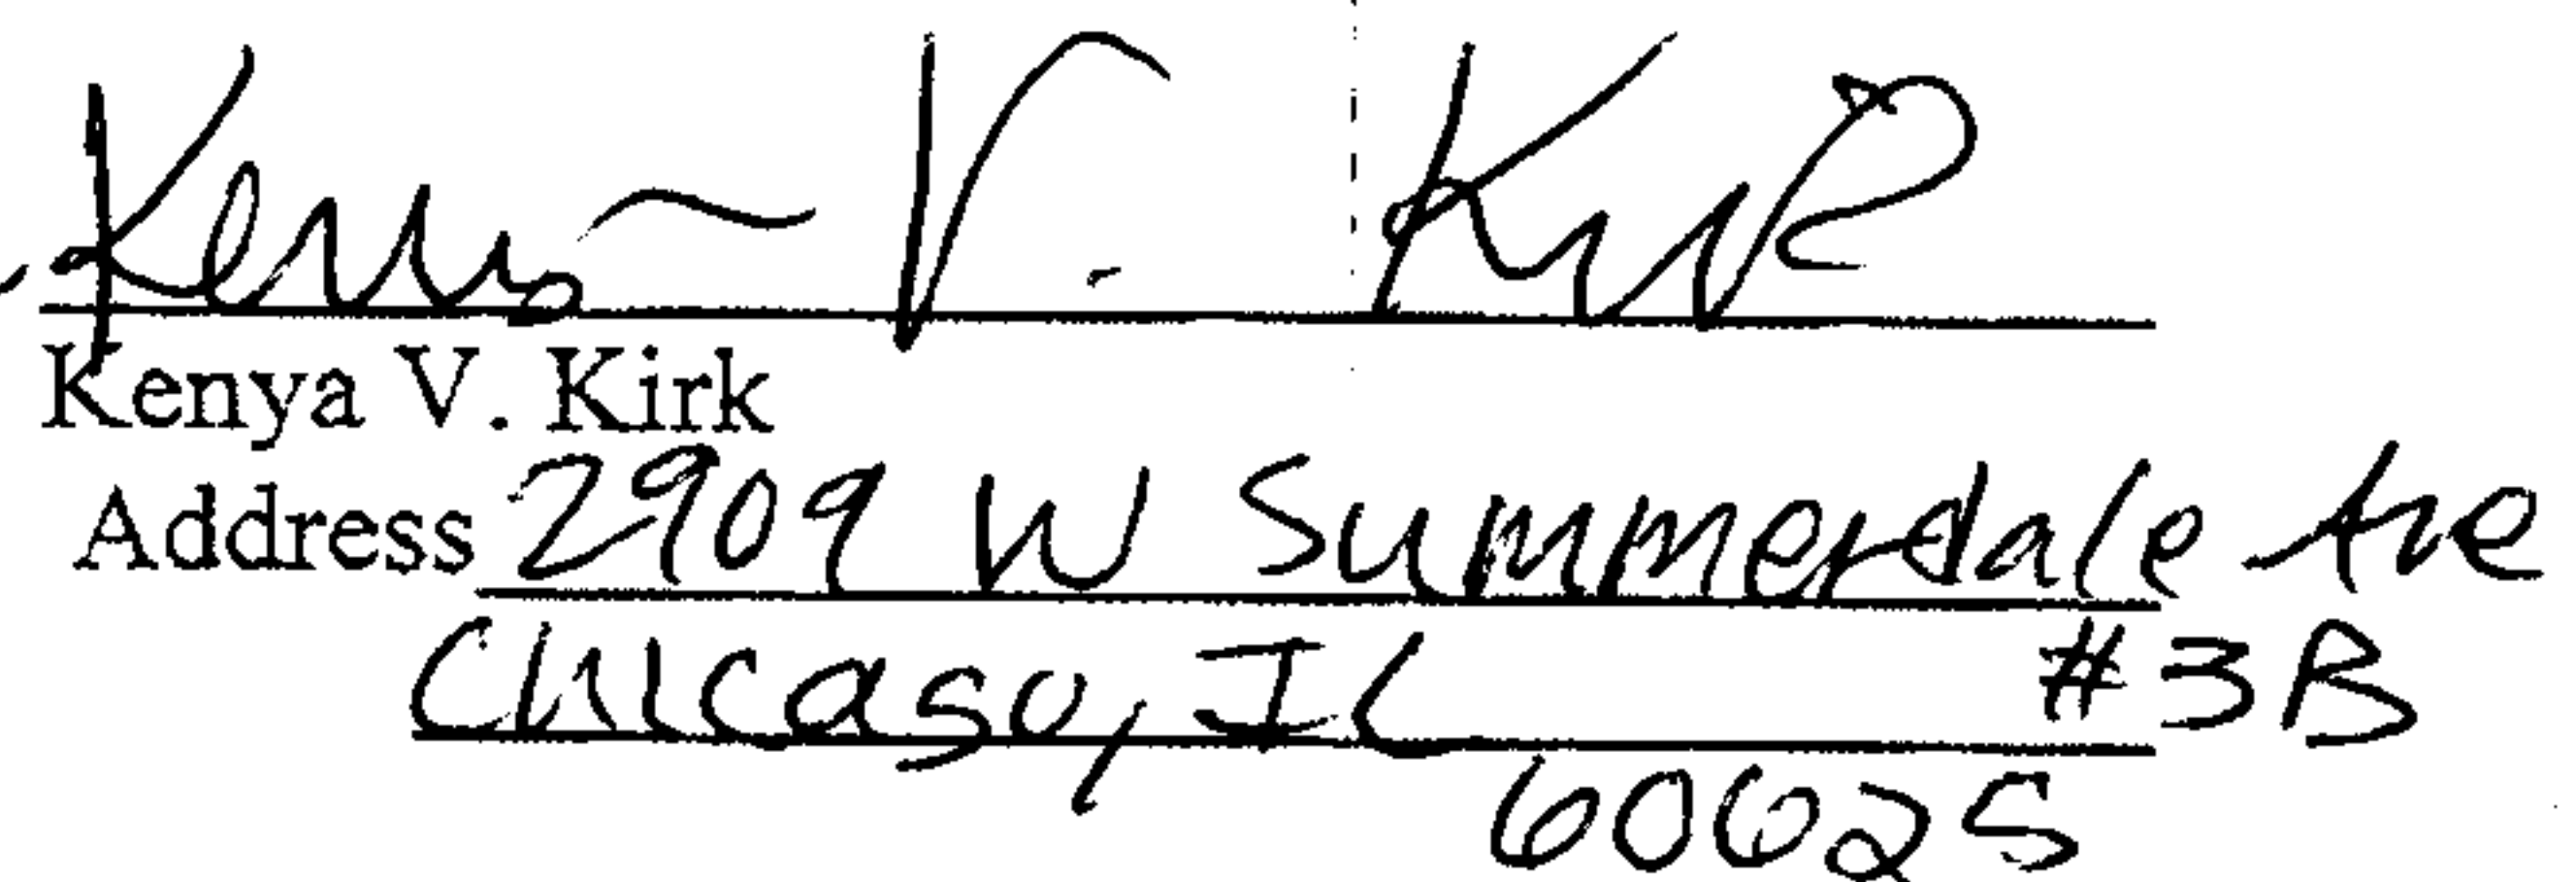 Kenya V. Kirk
Kenya V. Kirk
Address 2909 W Summerdale Ave
Chicago, IL #3B
60625